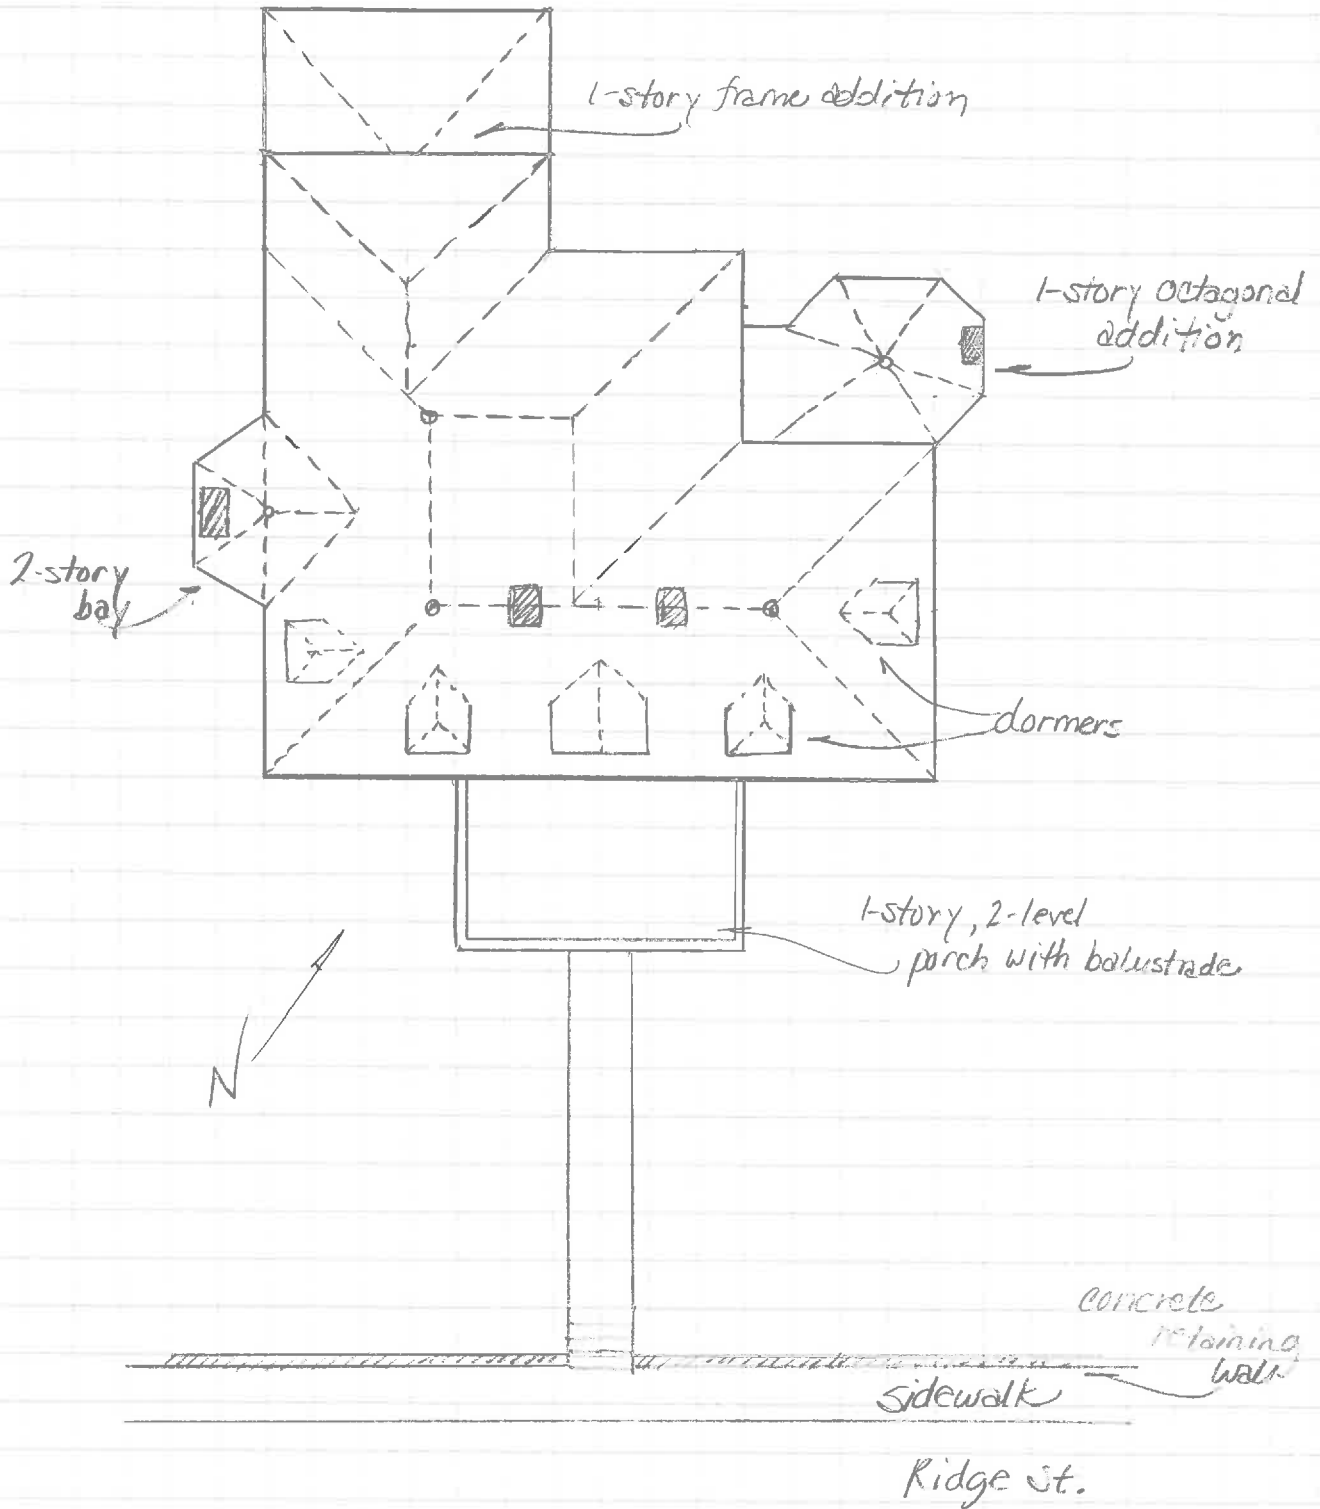 1-story frame addition
1-story octagonal
addition
2-story
bay
dormers
1-story, 2-level
porch with balustrade
N
concrete
retaining
wall
sidewalk
Ridge St.